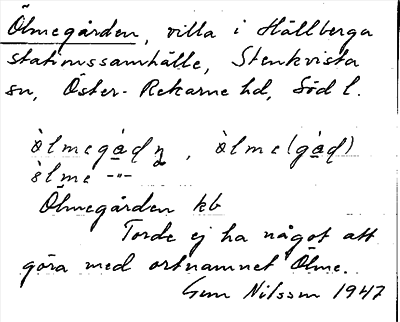 Ölmegården, villa i Hällberga
stationssamhälle, Stenkvista
sn, Öster-Rekarne hd, Söd l.
òlmegạ̊ḍṇ, òlme(gạ̊ḍ)
òlme -"-
Ölmegården kb
Torde ej ha något att
göra med ortnamnet Ölme.
Gun Nilsson 1947